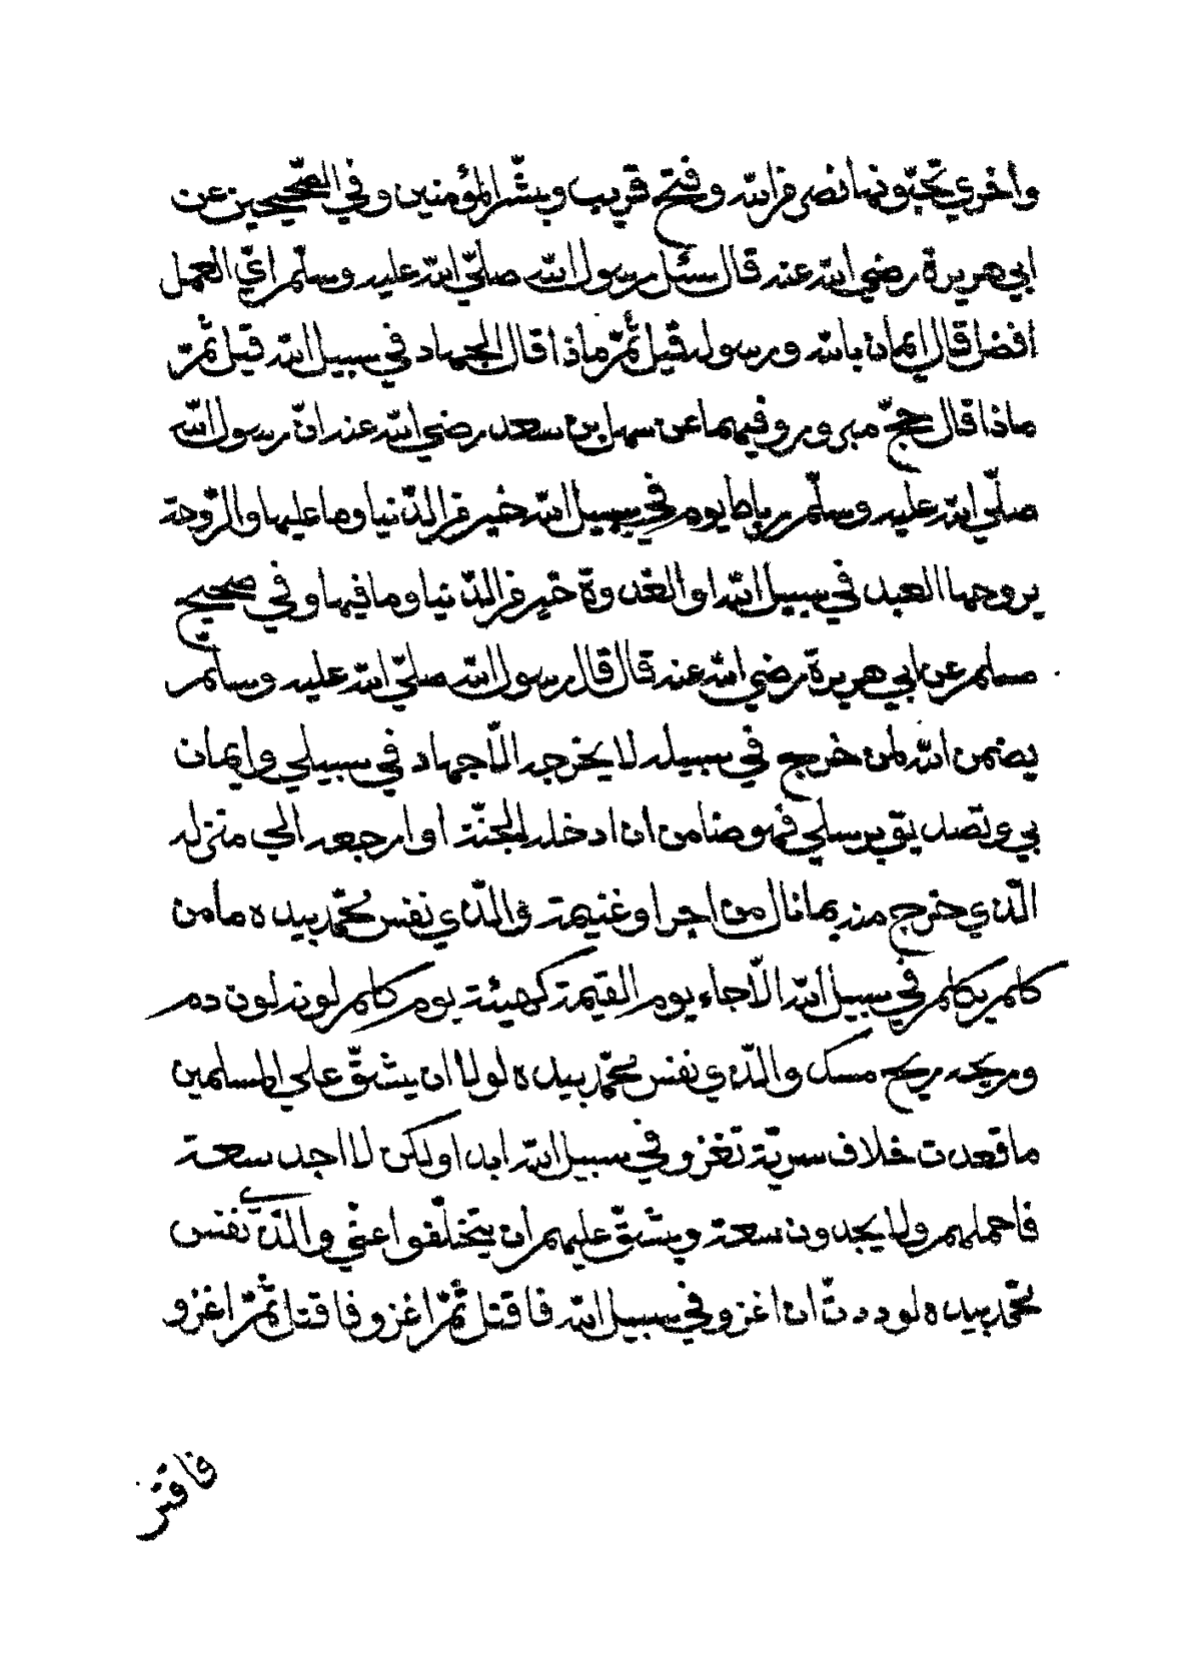 وأخري تحبّونها نصر من الله وفتح قريب وبشّر المؤمنين وفي الصّحيحين عن
ابي هريرة رضي الله عنه قال سئل رسول الله صلّي الله عليه وسلّم ايّ العمل
افضل قال ايمان بالله ورسوله قيل ثمّ ماذا قال الجهاد في سبيل الله قيل ثمّ
ماذا قال حجّ مبرور وفيهما عن سهل بن سعد رضي الله عنه انّ رسول الله
صلّي الله عليه وسلّم رباط يوم في سبيل الله خير من الدّنيا وما عليها والرّوحة
يروحها العبد في سبيل الله او الغدوة خير من الدّنيا وما فيها وفي صحيح
مسلم عن ابي هريرة رضي الله عنه قال قال رسول الله صلّي الله عليه وسلّم
يضمن الله لمن خرج في سبيله لا يخرجه الّا جهاد في سبيلي وايمان
بي وتصديق برسلي فهو ضامن ان ادخله الجنّة او ارجعه الي منزله
الّذي خرج منه بما نال من اجر او غنيمة والّذي نفس محمّد بيده ما من
كلم يكلم في سبيل الله الّا جاء يوم القيمة كهيئة يوم كلم لونه لون دم
وريحه ريح مسك والّذي نفس محمّد بيده لولا ان يشقّ علي المسلمين
ما قعدت خلاف سريّة تغزو في سبيل الله ابدا ولكن لا اجد سعة
فاحملهم ولا يجدون سعة ويشقّ عليهم ان يتخلّفوا عنّي والّذي نفس
محمّد بيده لوددتّ ان اغزو في سبيل الله فاقتل ثمّ اغزو فاقتل ثمّ اغزو